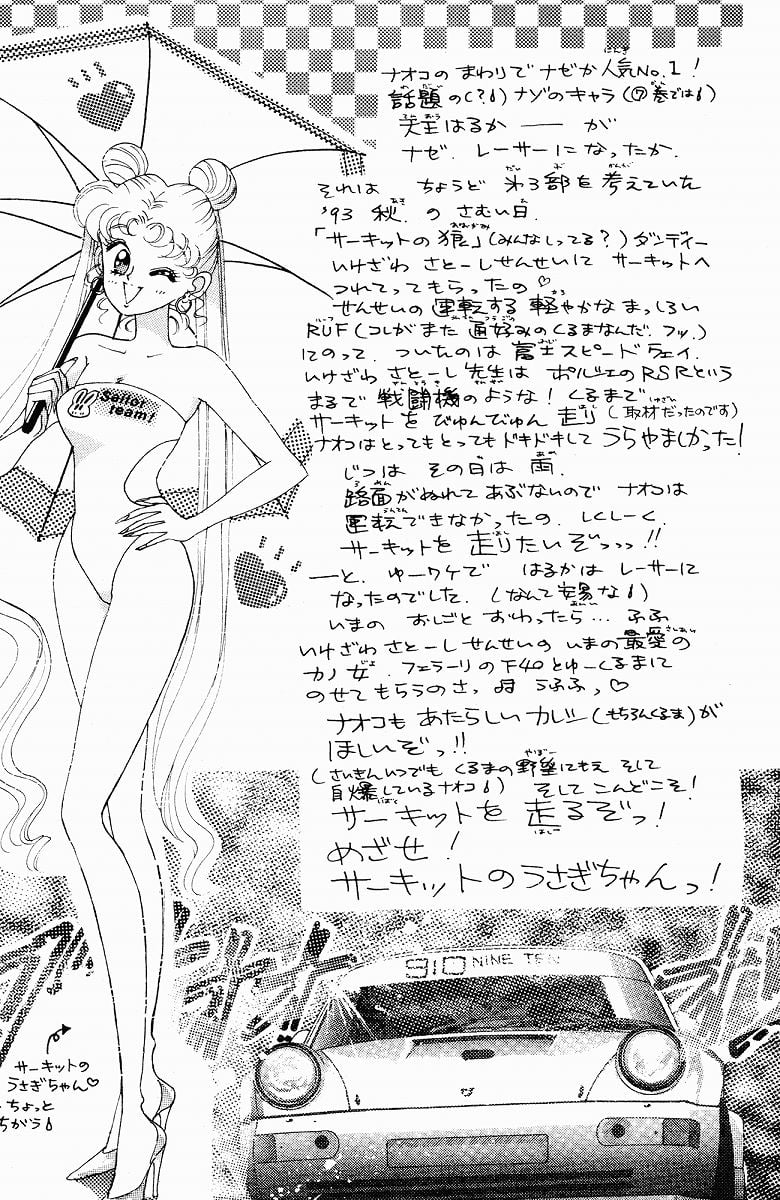 ナオコの まわりで ナゼか 人気No.1!
話題の(?) ナゾのキャラ(⑦巻では)
天王はるか ── が
ナゼ. レーサーになったか.
それは ちょうど 第3部を考えていた
'93 秋. の さむい日.
「サーキットの狼」(みんなしってる?) ダンディー
いけざわ さとーしせんせいに サーキットへ
つれてって もらったの♡
せんせいの 運転する 軽やかな まっしろい
RUF(コレがまた 通好みのくるまなんだ. フッ.)
にのって. ついたのは 富士スピードウェイ.
いけざわ さとーし 先生は ポルシェのRSRという
まるで 戦闘機のような! くるまで
サーキットを びゅんびゅん 走り(取材だったのです)
ナオコはとってもとっても ドキドキして うらやましかった!
じつは その日は 雨.
路面がぬれて あぶないので ナオコは
運転できなかったの. しくしく.
サーキットを 走りたいぞっっっ!!
──と. ゆーワケで はるかは レーサーに
なったのでした. (なんて安易な)
いまの おしごと おわったら… ふふ
いけざわ さとーしせんせいの いまの最愛の
カノ女. フェラーリの F40とゆーくるまに
のせて もらうのさっ ♫ うふふっ♡
ナオコも あたらしい カレシ(もちろんくるま)が
ほしいぞっ!!
(さいきんいつでも くるまの野望にもえ そして
自爆しているナオコ) そして こんどこそ!
サーキットを 走るぞっ!
めざせ!
サーキットの うさぎちゃんっ!
Sailor
team!
910 NINE TEN
サーキットの
うさぎちゃん♡
ちょっと
ちがう